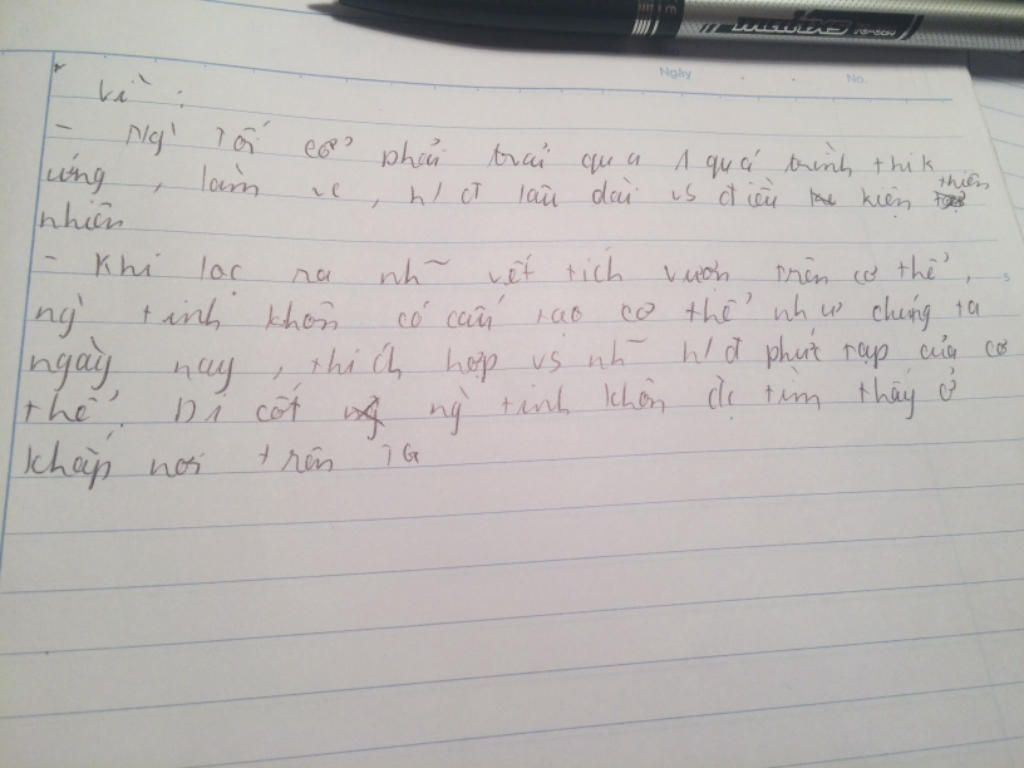 Ngày No.
Vì :
- Ng` Tối cơ phải trải qua 1 quá trình thik
ứng, làm vc, h/đ lâu dài vs điều kiện thiên
nhiên
- Khi lọc ra nh~ vết tích vượn trên cơ thể,
ng` tinh khôn có cấu tạo cơ thể như chúng ta
ngày nay, thích hợp vs nh~ h/đ phứt tạp của cơ
thể. Di cốt ng` tinh khôn đc tìm thấy ở
khắp nơi trên TG